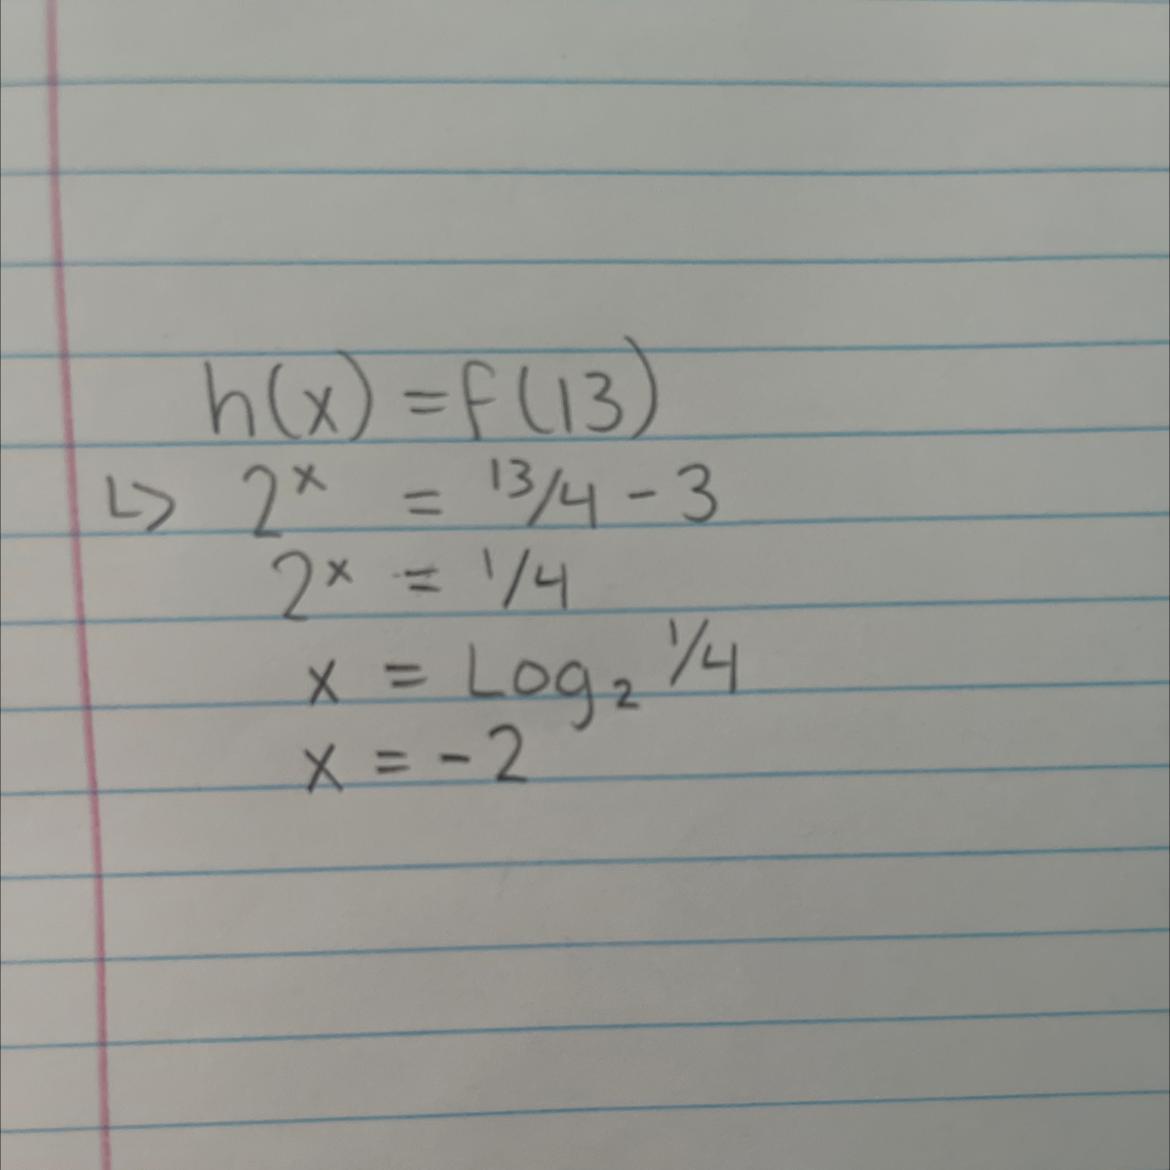 h(x) = f(13)
↳ 2ˣ = 13/4 - 3
2ˣ = 1/4
x = Log₂ 1/4
x = -2